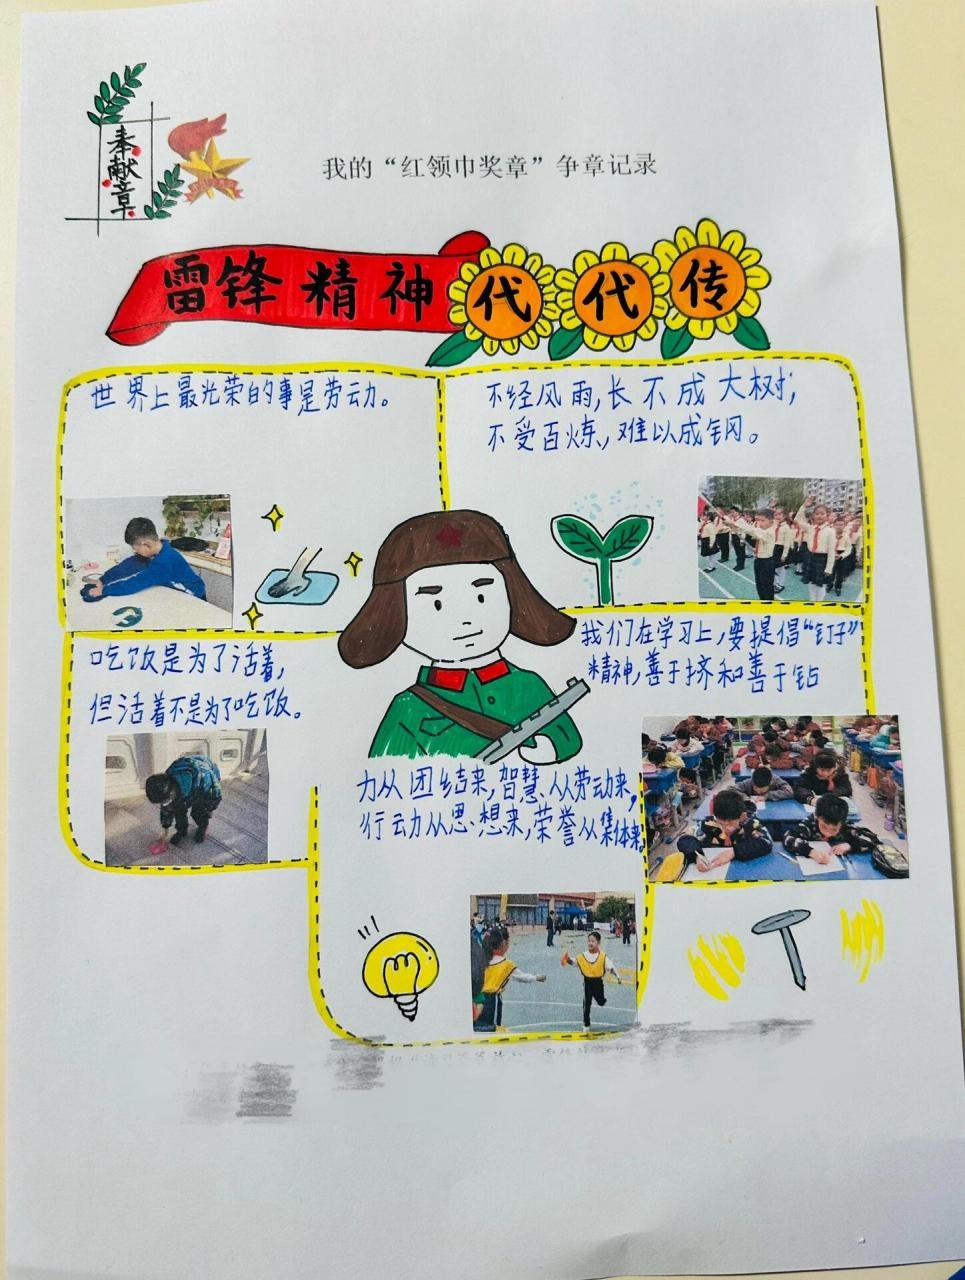 奉献章
我的“红领巾奖章”争章记录
雷锋精神代代传
世界上最光荣的事是劳动。
不经风雨，长不成大树；
不受百炼、难以成钢。
吃饭是为了活着，
但活着不是为了吃饭。
我们在学习上，要提倡“钉子”
精神，善于挤和善于钻
力从团结来，智慧从劳动来，
行动从思想来，荣誉从集体来。